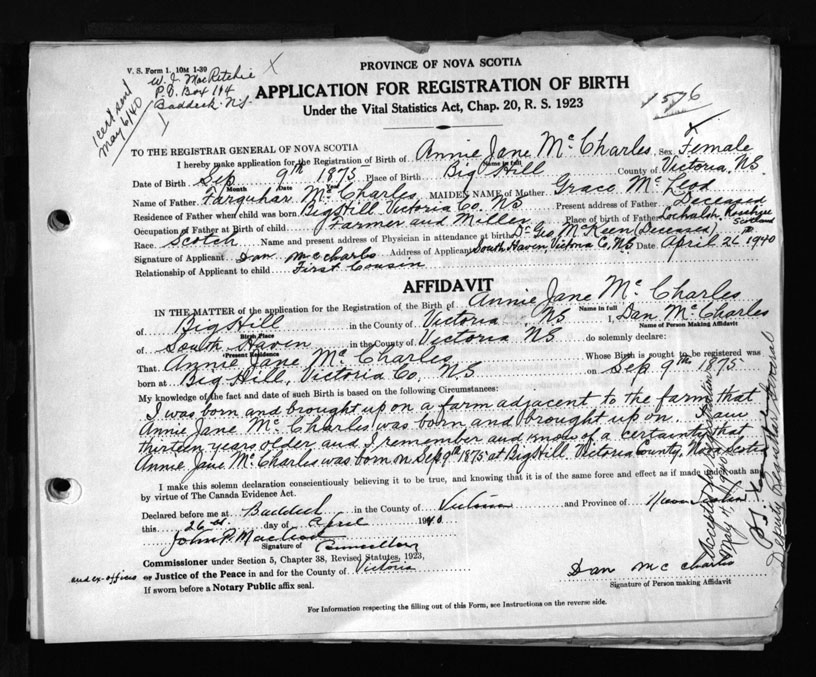 V. S. Form 1. 10M 1-39
W. J. MacRitchie X
P.O. Box 114
Baddeck. N.S.
cert sent
May 6/40
PROVINCE OF NOVA SCOTIA
APPLICATION FOR REGISTRATION OF BIRTH
Under the Vital Statistics Act, Chap. 20, R. S. 1923
1576
X
TO THE REGISTRAR GENERAL OF NOVA SCOTIA
I hereby make application for the Registration of Birth of Annie Jane McCharles Sex Female
Name in full
Date of Birth Sep 9th 1875 Place of Birth Big Hill County of Victoria, NS.
Month Date Year
Name of Father Farquhar McCharles MAIDEN NAME of Mother Grace McLeod
Residence of Father when child was born Big Hill. Victoria Co. NS Present address of Father Deceased
Occupation of Father at Birth of child Farmer and Miller Place of birth of Father Lochalsh, Scotland
Race Scotch Name and present address of Physician in attendance at birth Dr Geo. McKeen (Deceased)
Signature of Applicant Dan McCharles Address of Applicant South Haven, Victoria Co, NS Date April 26th 1940
Relationship of Applicant to child First Cousin
AFFIDAVIT
IN THE MATTER of the application for the Registration of the Birth of Annie Jane McCharles
Name in full
of Big Hill in the County of Victoria, NS I, Dan McCharles
Birth Place Name of Person Making Affidavit
of South Haven in the County of Victoria NS. do solemnly declare:
Present Residence
That Annie Jane McCharles Whose Birth is sought to be registered was
born at Big Hill, Victoria Co. NS on Sep. 9th 1875
My knowledge of the fact and date of such Birth is based on the following Circumstances:
I was born and brought up on a farm adjacent to the farm that
Annie Jane McCharles was born and brought up on. I am
thirteen years older and I remember and know of a certainty that
Annie Jane McCharles was born on Sep. 9th 1875 at Big Hill. Victoria County, Nova Scotia
I make this solemn declaration conscientiously believing it to be true, and knowing that it is of the same force and effect as if made under oath and
by virtue of The Canada Evidence Act.
Declared before me at Baddeck in the County of Victoria and Province of Nova Scotia
this 26th day of April 1940
John P. MacLeod
Signature of Councillor
Commissioner under Section 5, Chapter 38, Revised Statutes, 1923,
and ex-officio or Justice of the Peace in and for the County of Victoria
If sworn before a Notary Public affix seal.
Dan McCharles
Signature of Person making Affidavit
For Information respecting the filling out of this Form, see Instructions on the reverse side.
Accepted for registration
May 4, 1940
Deputy Registrar General